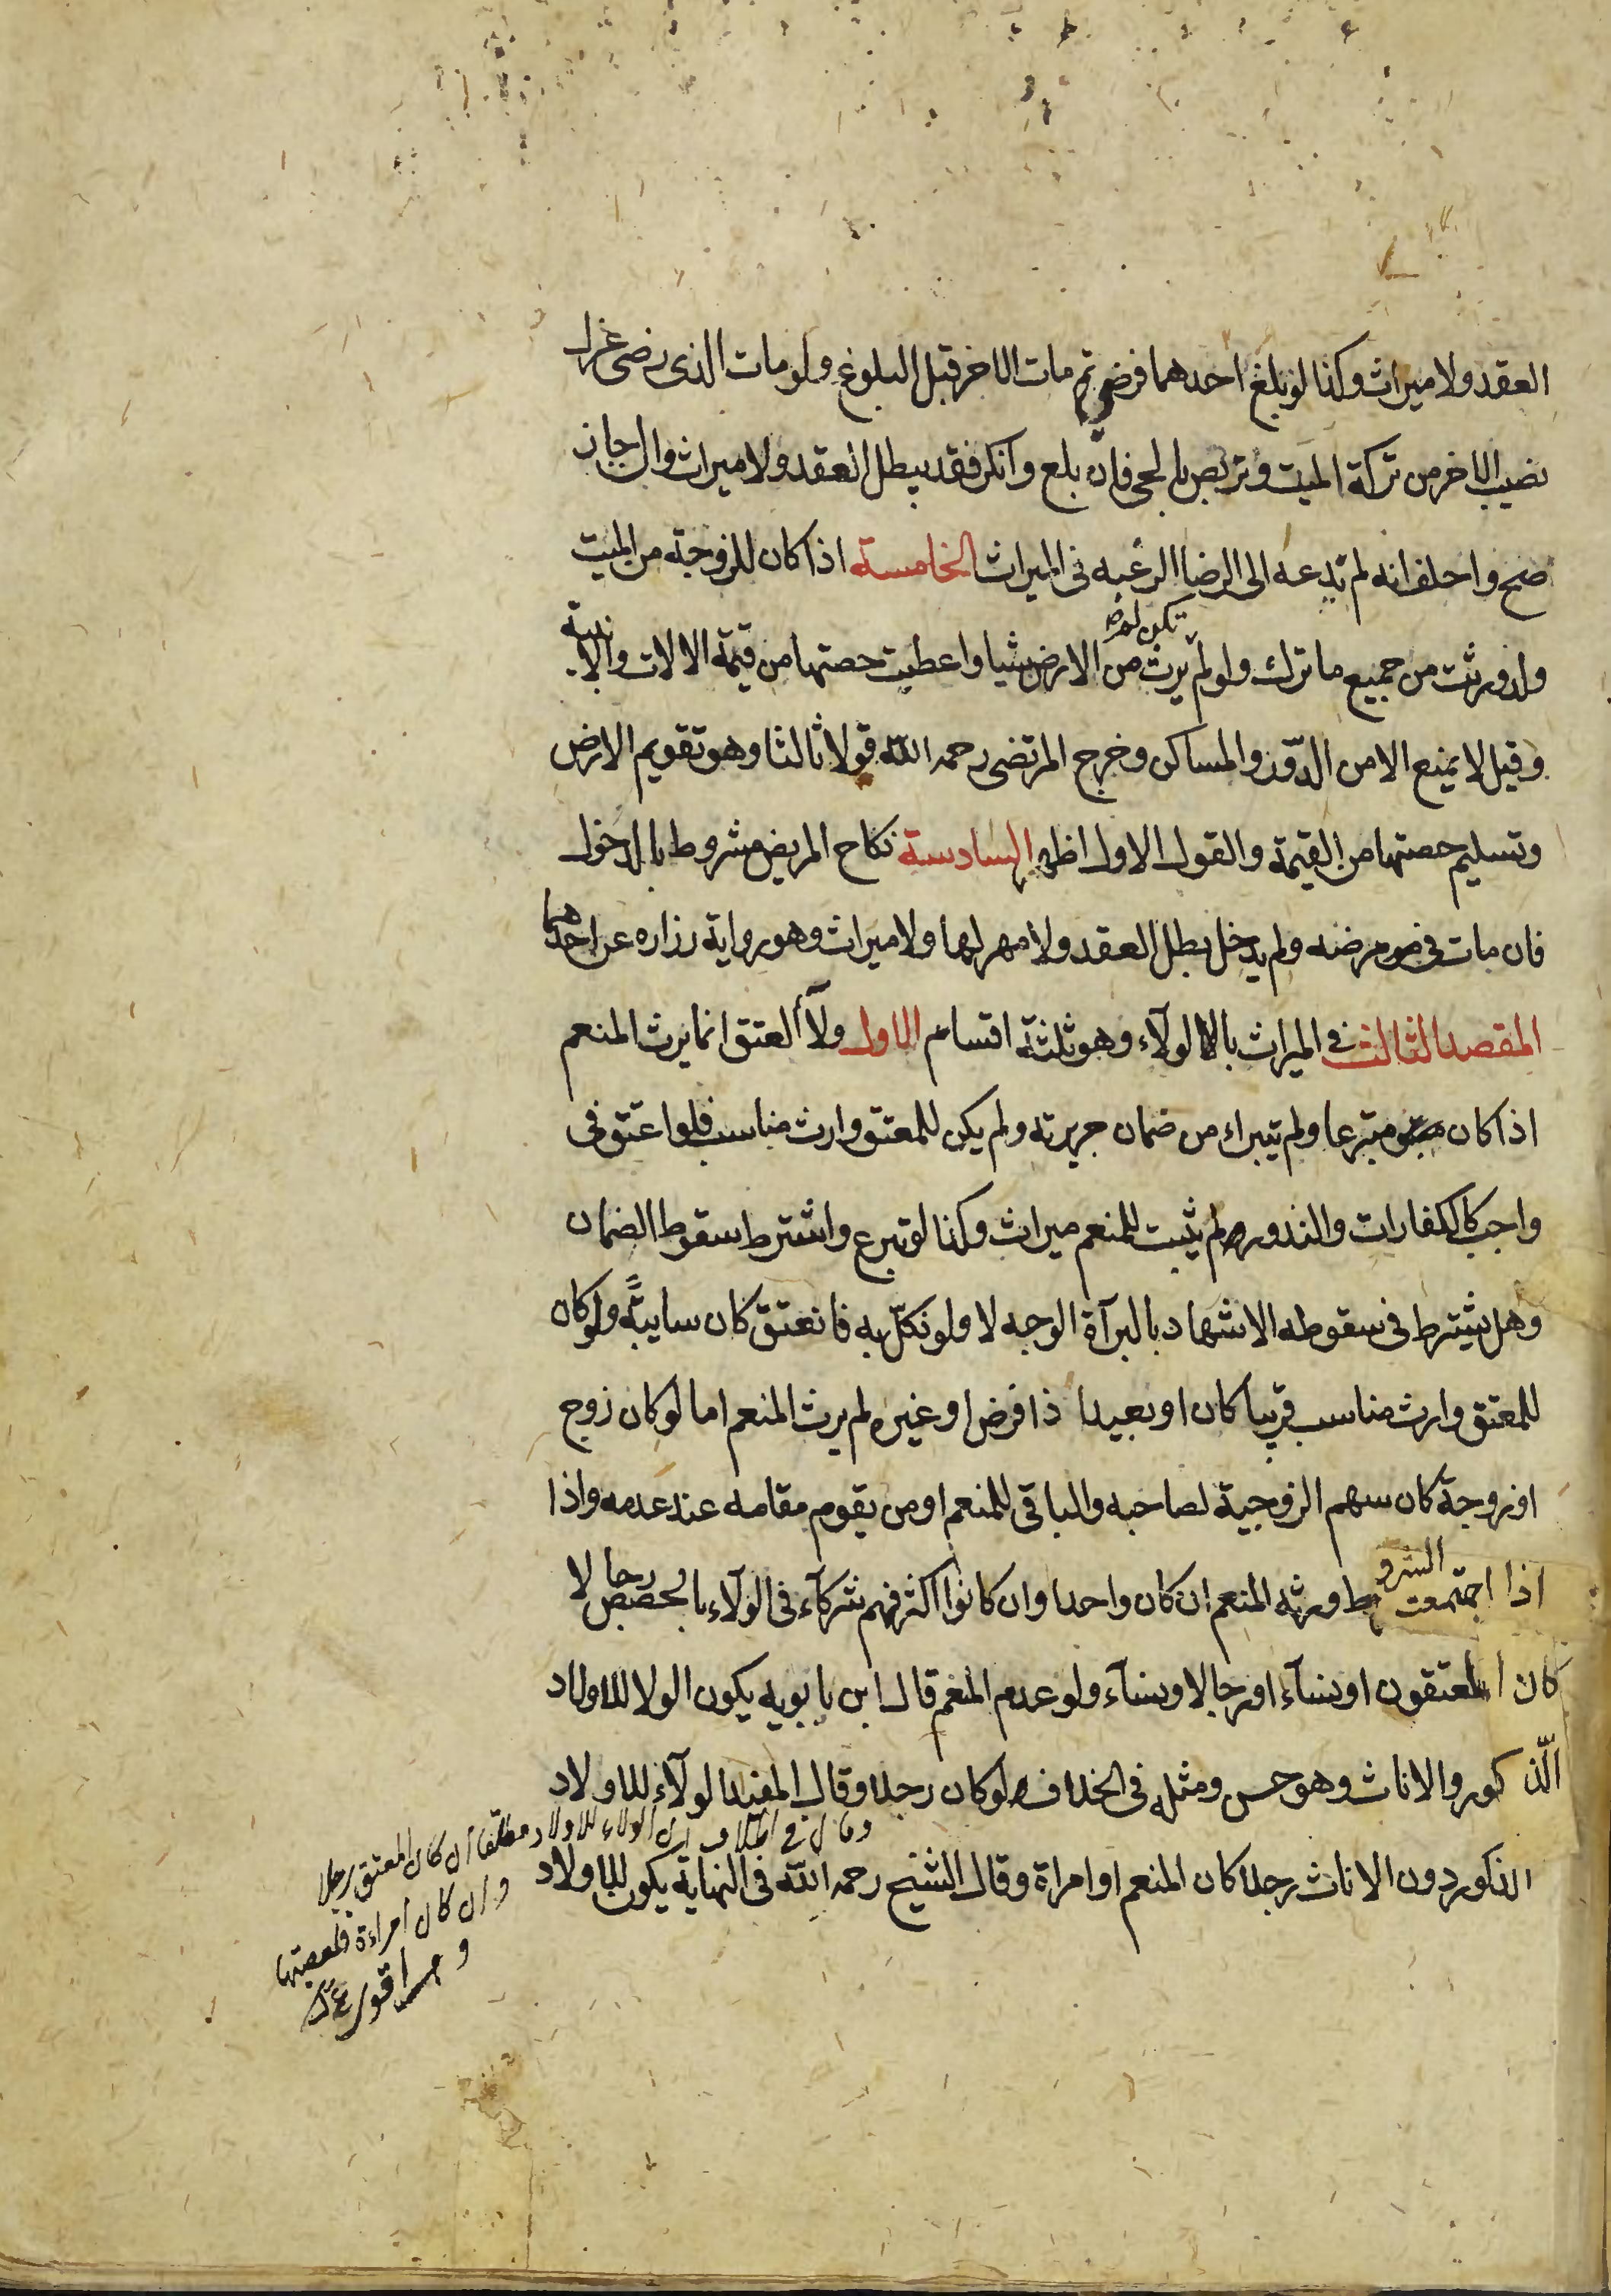 العقد ولا ميراث وكذا لو بلغ احدهما فرضي ثم مات الاخر قبل البلوغ ولو مات الذى رضى عزل
نصيب الاخر من تركة الميت وتربص بالحى فان بلغ وانكر فقد بيطل العقد ولا ميراث وان اجاز
صح واحلف انه لم تدعه الى الرضا الرغبه فى الميراث الخامسة اذا كان للزوجة من الميت
ولد ورثت من جميع ما ترك ولو لم يرث من الارض شيا واعطيت حصتها من قيمة الالات والابنية
تكن له
وقيل لا يمنع الا من الدّور والمساكن وخرج المرتضى رحمه الله قولا ثالثا وهو تقويم الارض
وتسليم حصتها من القيمة والقول الاول اظهر السادسة نكاح المريض مشروط بالدخول
فان مات فى مرضه ولم يدخل بطل العقد ولا مهر لها ولا ميراث وهو رواية زراره عن احدهما
المقصد الثالث فى الميراث بالولآء وهو ثلثة اقسام الاول ولآء العتق انما يرث المنعم
اذا كان متبرعا ولم يتبراء من ضمان جريرته ولم يكن للمعتق وارث مناسب فلو اعتق فى
واجب كالكفارات والنذور لم يثبت للمنعم ميراث وكذا لو تبرع واشترط سقوط الضمان
وهل يشترط فى سقوطه الاشهاد بالبرآة الوجه لا ولو نكّل به فانعتق كان سايبةً ولو كان
للمعتق وارث مناسب قريبا كان او بعيدا ذا فرض او غيره لم يرث المنعم اما لو كان زوج
او زوجة كان سهم الزوجية لصاحبه والباقى للمنعم او من يقوم مقامه عند عدمه واذا
اذا اجتمعت الشروط ورثه المنعم ان كان واحدا وان كانوا اكثر فهم شركآء فى الولآء بالحصص رجالا
كان المعتقون او نسآء او رجالا ونسآء ولو عدم المنعم قال ابن بابويه يكون الولا للاولاد
الّذكور والاناث وهو حسن ومثله فى الخلاف لو كان رجلا وقال المفيد الولآء للاولاد
الذكور دون الاناث رجلا كان المنعم او امراة وقال الشيخ رحمه الله فى النهاية يكون للاولاد
وقال فى الخلاف ان الولاء للاولاد مطلقا ان كان المعتق رجلا
وان كان امراءة فلعصبتها